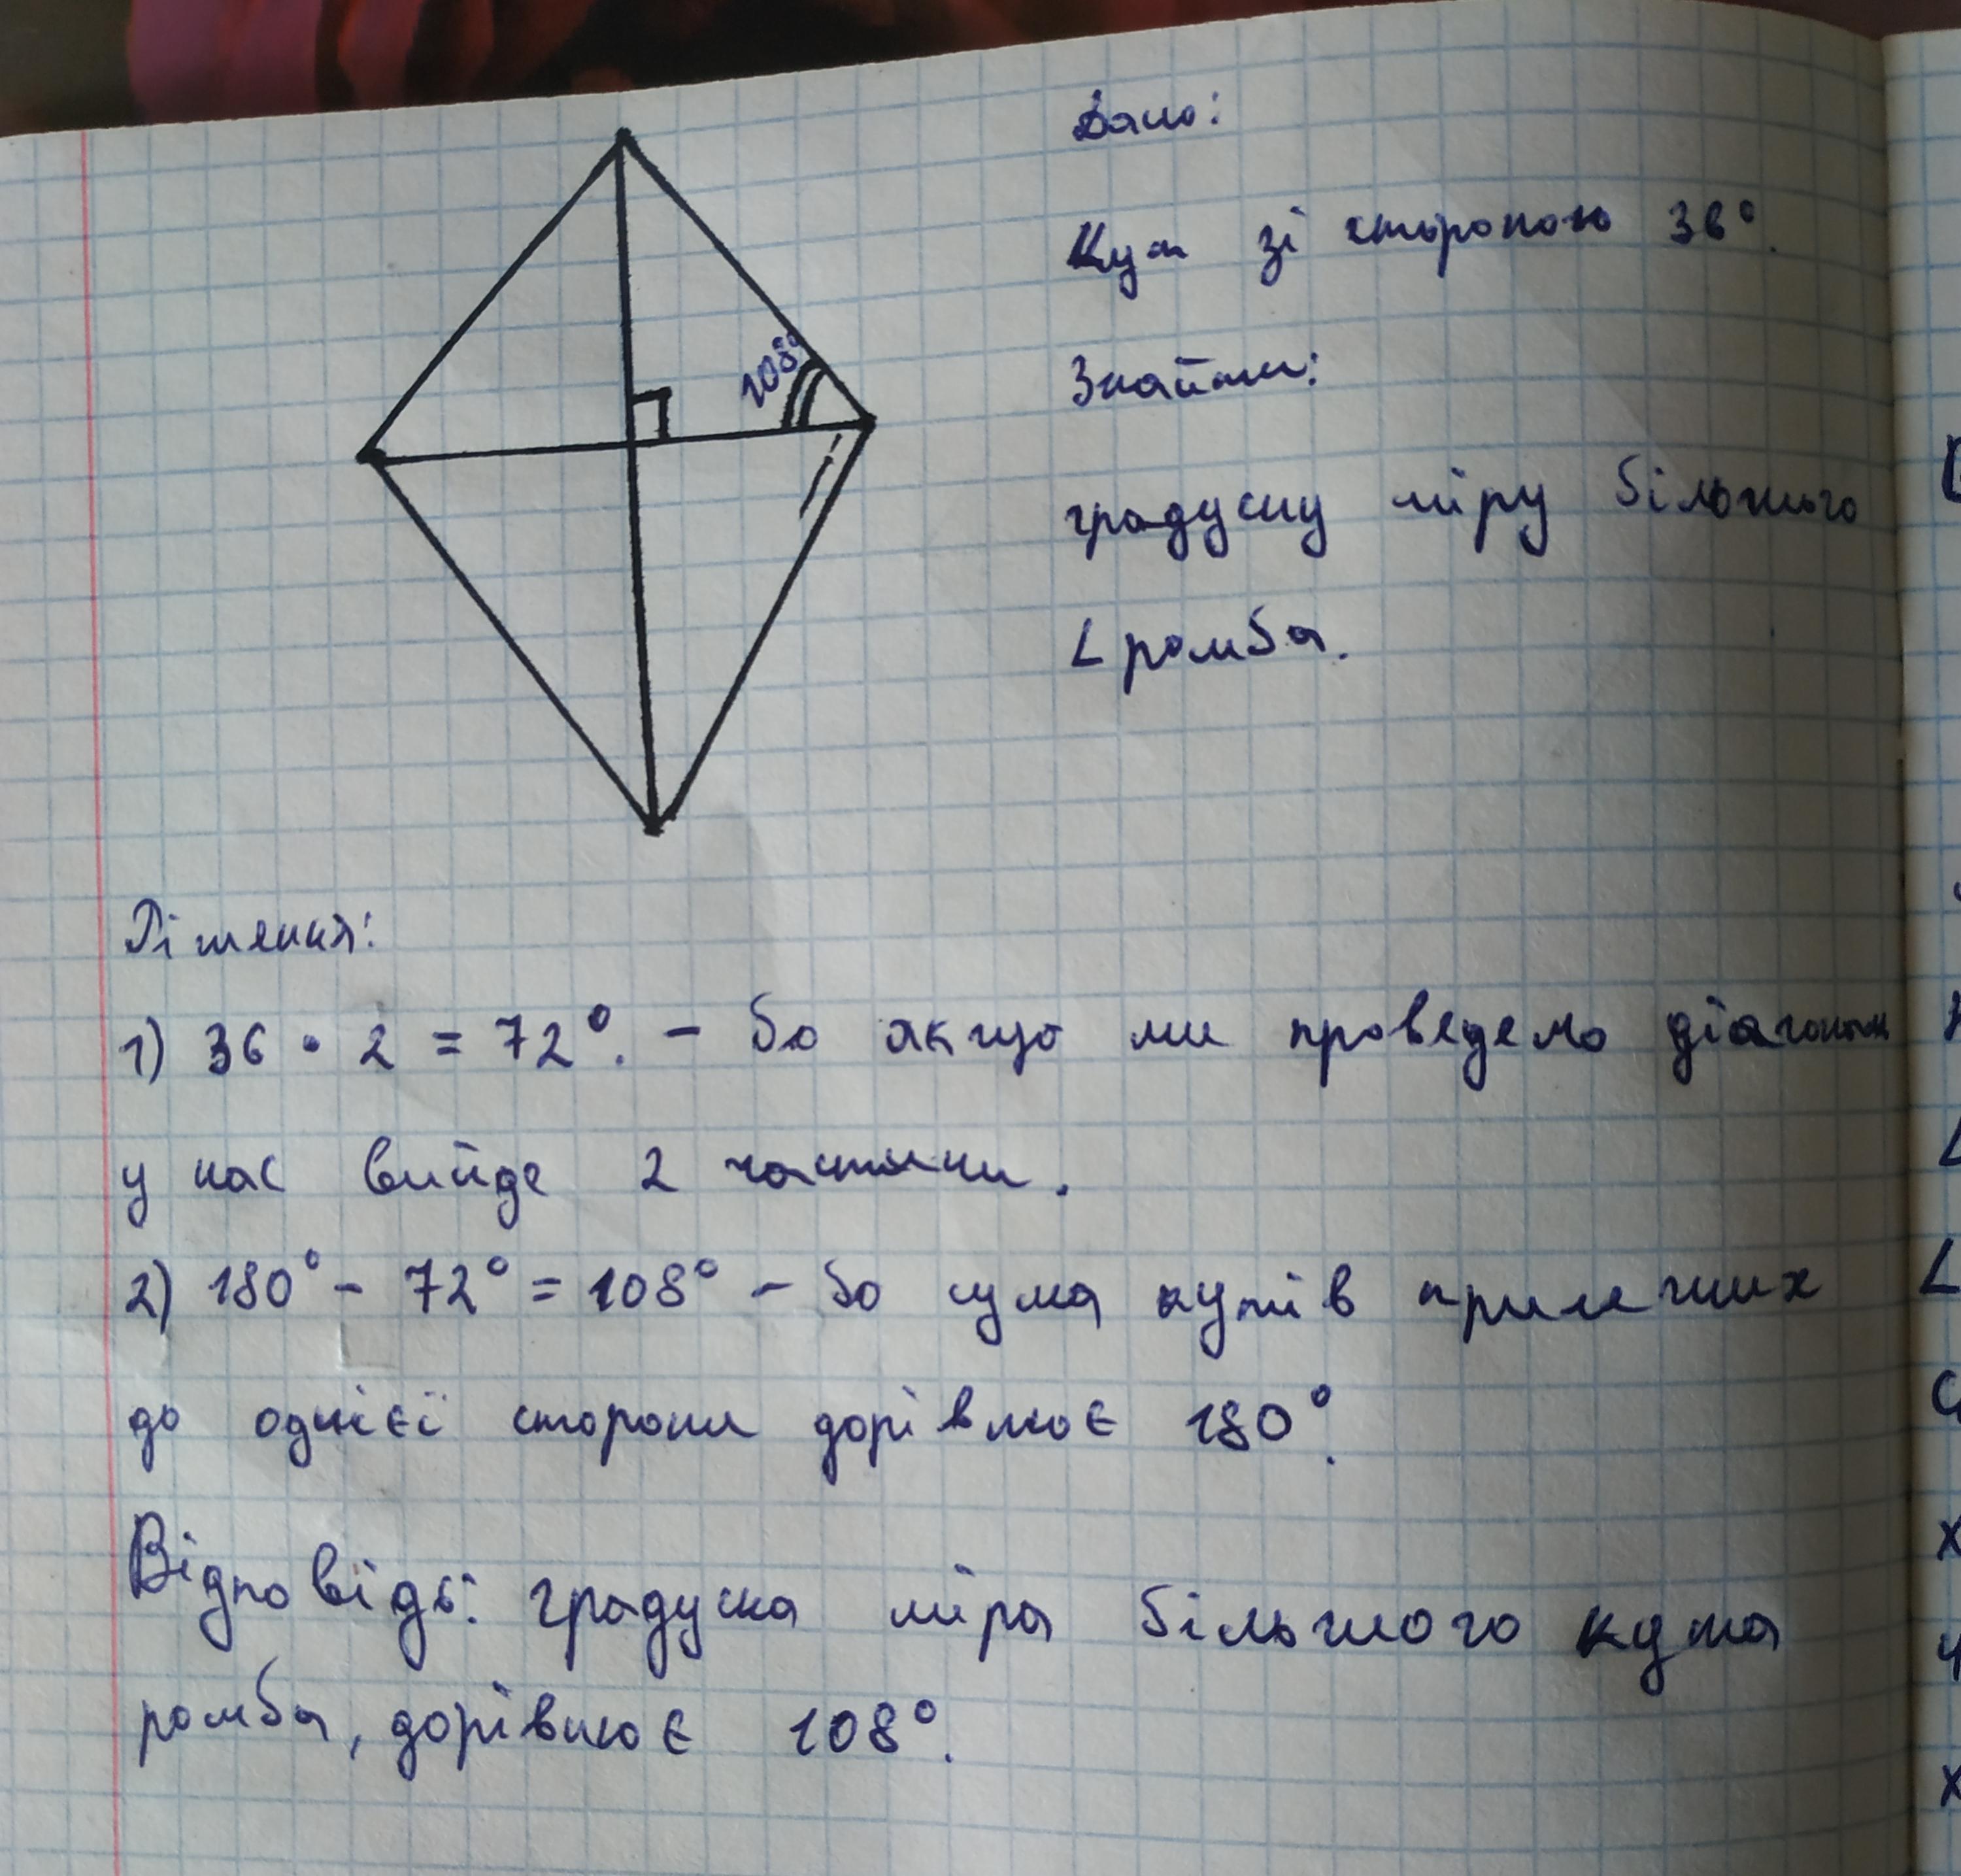 Дано:
Кут зі стороною 36°.
Знайти:
градусну міру більшого
∠ ромба.
108°
Рішення:
1) 36 · 2 = 72°. – бо якщо ми проведемо
у нас вийде 2 частини.
2) 180° – 72° = 108° – бо сума кутів прилеглих
до однієї сторони дорівнює 180°.
Відповідь: градусна міра більшого кута
ромба, дорівнює 108°.